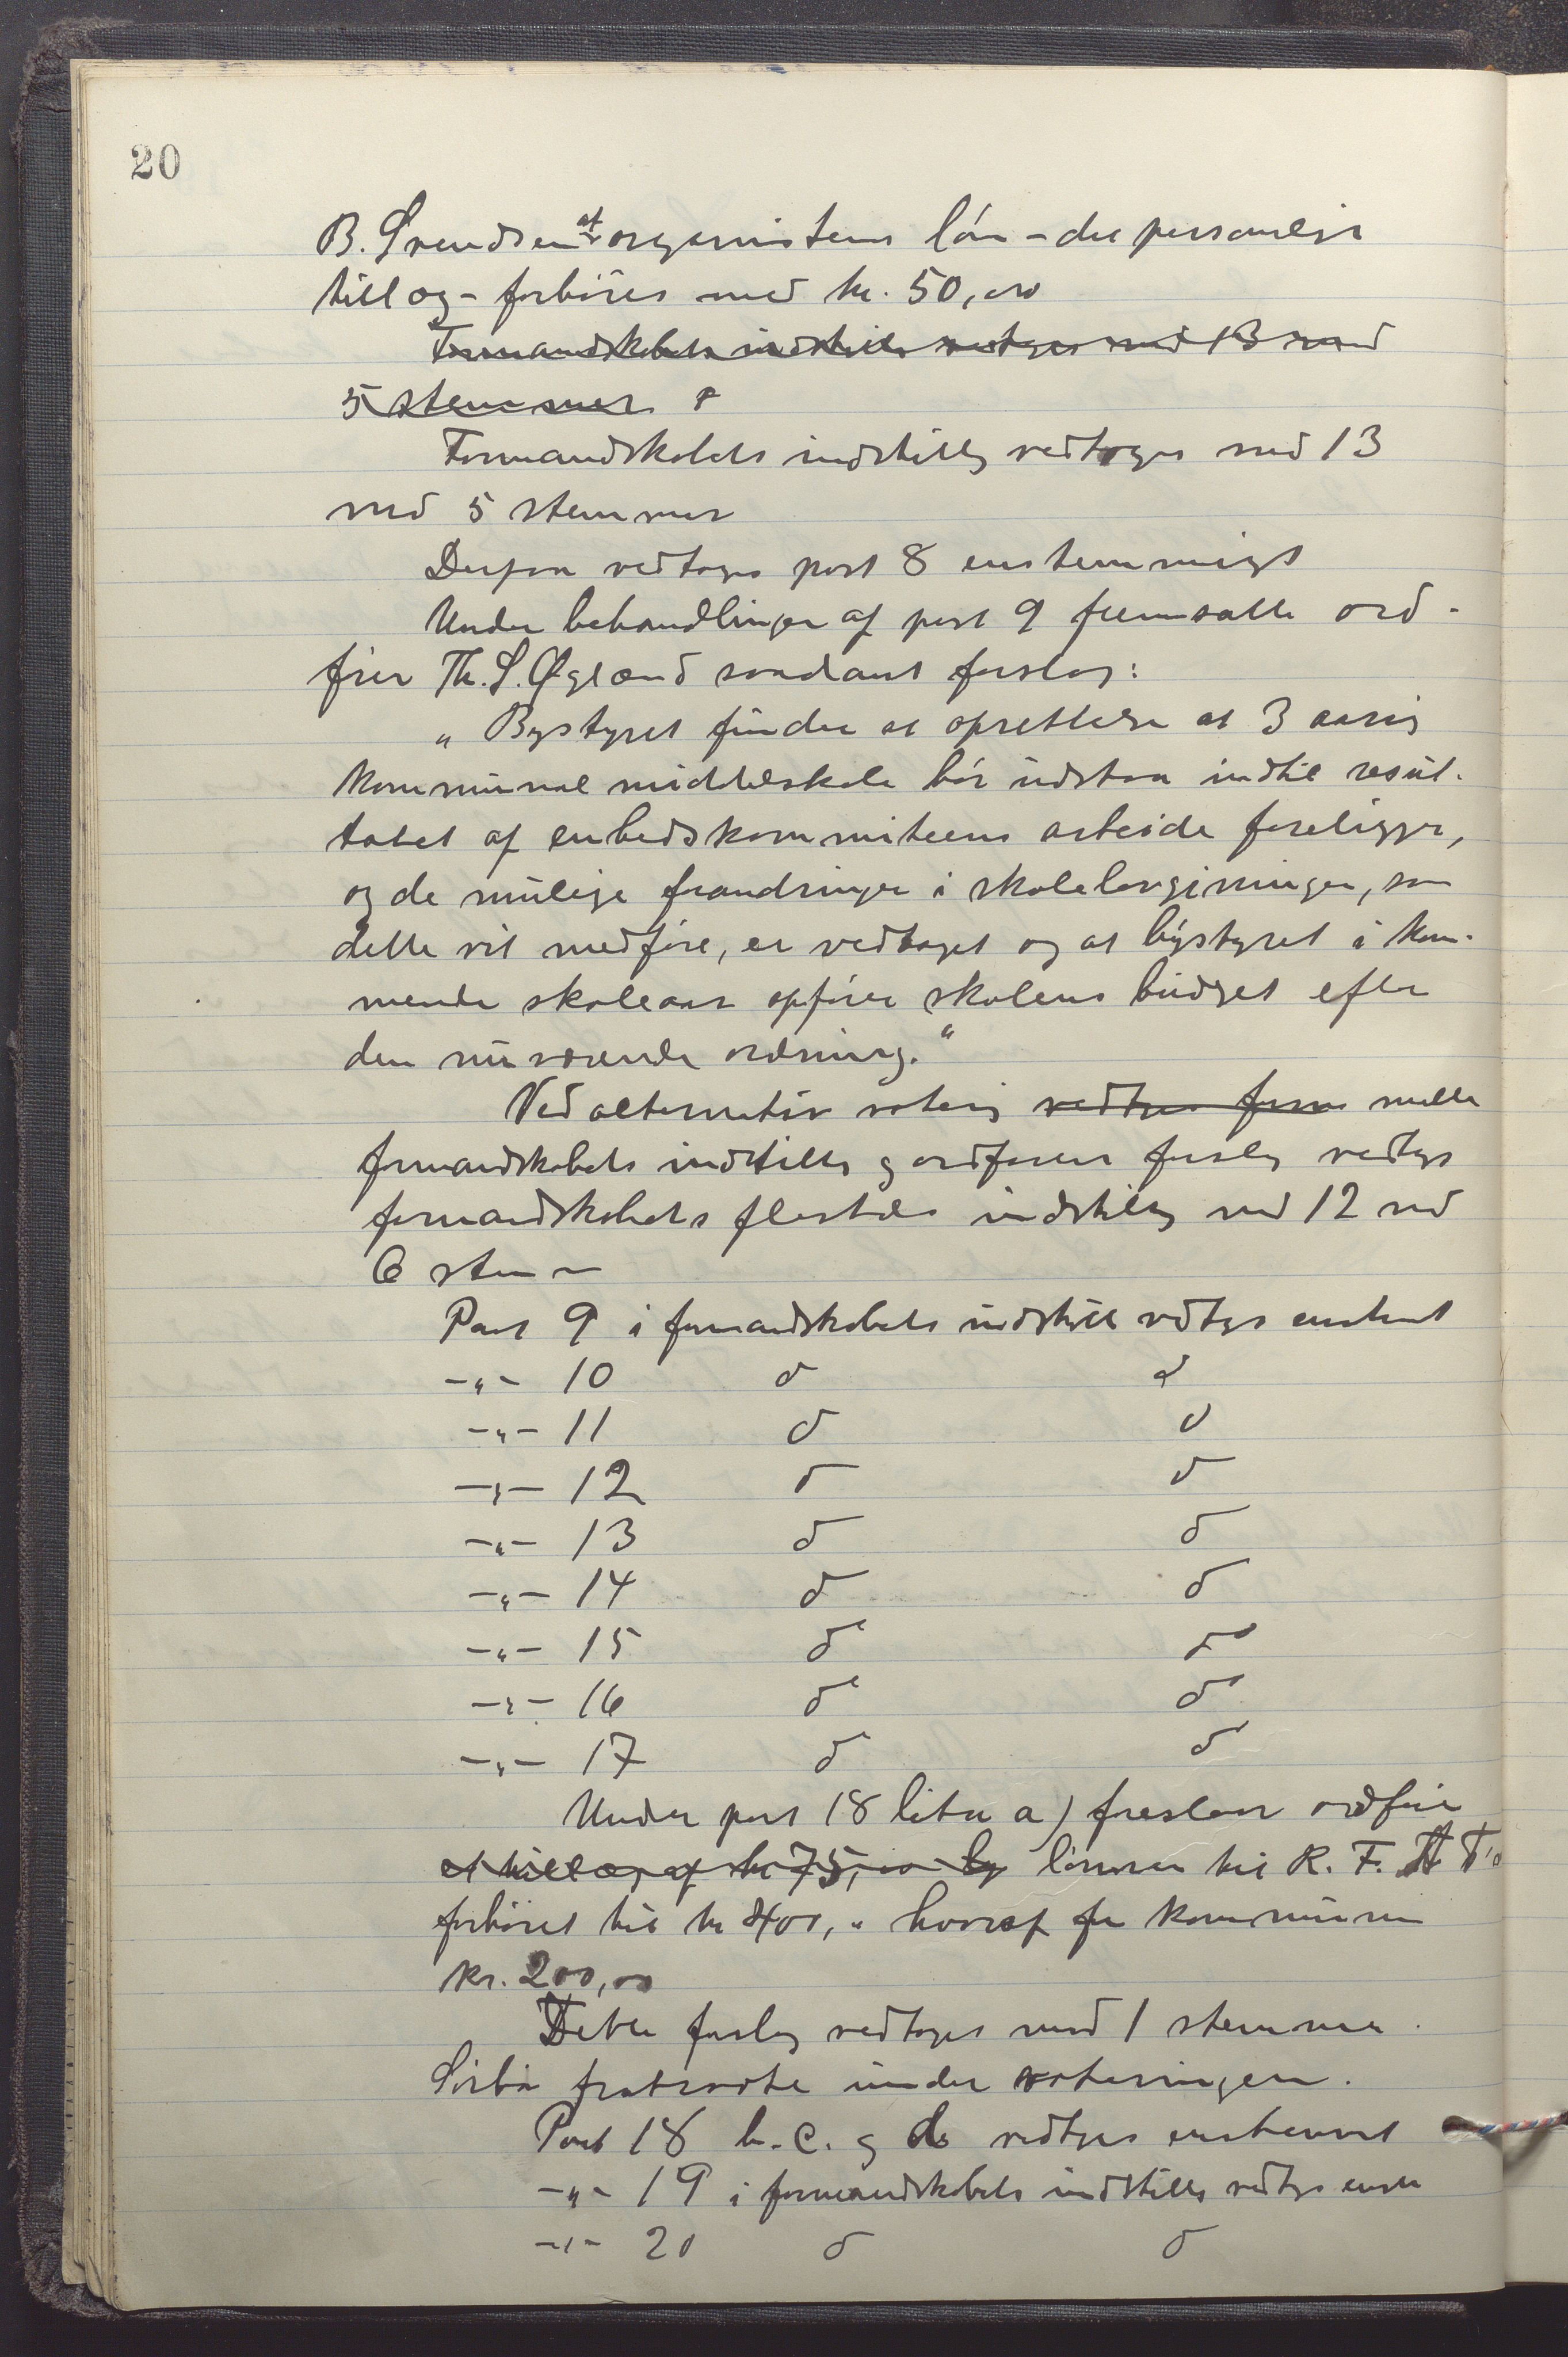 20
B. Svendsen at organistens løn – det personlige
tillæg – forhöies med kr. 50,00
Formandskabets indstilling vedtages med 13 mod
5 stemmer
Formandskabets indstilling vedtoges med 13
mod 5 stemmer
Derpaa vedtoges post 8 enstemmigt
Under behandlingen af post 9 fremsatte ord-
förer Th. S. Øglænd saadant forslag:
„Bystyret finder at oprettelse at 3 aarig
kommunal middelskole bör udstaa indtil resul-
tatet af enhedskommiteens arbeide foreligger,
og de mulige forandringer i skolelovgivningen, som
dette vil medføre, er vedtaget og at bystyret i kom-
mende skoleaar opförer skolens budget efter
den nuværende ordning."
Ved alternativ votering vedtoges form mellem
formandskabets indstilling og ordförerens forslag vedtoges
formandskabets flertals indstilling med 12 mod
6 stemmer
Post 9 i formandskabets indstill vedtoges enstemt
-„- 10 d d
-„- 11 d d
-„- 12 d d
-„- 13 d d
-„- 14 d d
-„- 15 d d
-„- 16 d d
-„- 17 d d
Under post 18 litra a) foreslaar ordförer
et tillæg af kr 75,00 lönnen til R. F.
forhöiet til kr 400,„ hvoraf fra kommunen
kr. 200,00
Dette forslag vedtoges mod 1 stemme.
Sörbö fratraadte under voteringen.
Post 18 b. c. og d vedtoges enstemt
-„- 19 i formandskabets indstilling vedtoges enst
-„- 20 d d